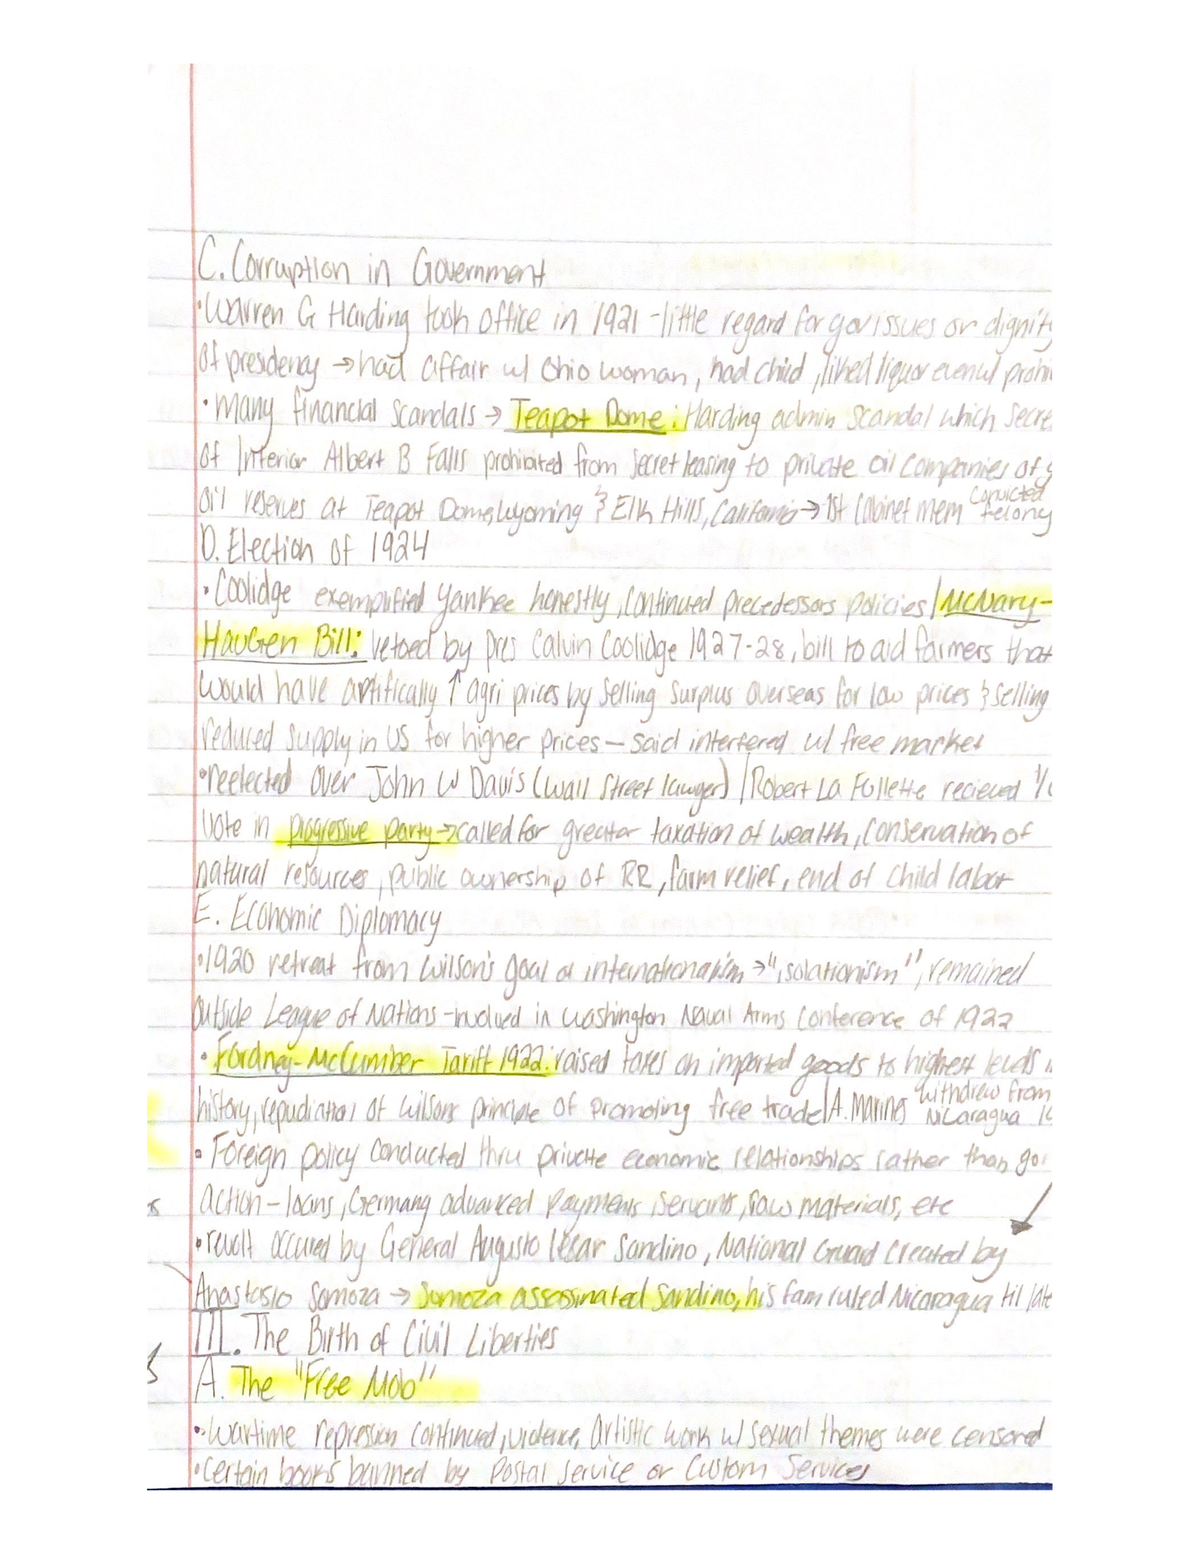 C. Corruption in Government
·Warren G Harding took office in 1921 -little regard for gov issues or dignity
of presidency →had affair w/ Ohio woman, had child, liked liquor even w/ prohi
·Many financial scandals → Teapot Dome: Harding admin scandal which secre
of Interior Albert B Falls prohibited from secret leasing to private oil companies of g
oil reserves at Teapot Dome, Wyoming & Elk Hills, California → 1st Cabinet mem convicted felony
D. Election of 1924
·Coolidge exemplified Yankee honestly, continued precedessors policies / McNary-
Haugen Bill: vetoed by pres Calvin Coolidge 1927-28, bill to aid farmers that
would have artifically ↑ agri prices by selling surplus overseas for low prices & selling
reduced supply in US for higher prices - said interfered w/ free market
·reelected over John W Davis (Wall Street lawyer) / Robert La Follette recieved 1/
vote in progressive party → called for greater taxation of wealth, conservation of
natural resources, public ownership of RR, farm relief, end of child labor
E. Economic Diplomacy
·1920 retreat from Wilson's goal of internationalism → "isolationism", remained
outside League of Nations -involved in Washington Naval Arms Conference of 1922
·Fordney-McCumber Tariff 1922: raised taxes on imported goods to highest levels i
history, repudiation of Wilsons principle of promoting free trade / A. Marines withdrew from Nicaragua
·Foreign policy conducted thru private economic relationships rather than go
action - loans, Germany advanced payments, raw materials, etc
·revolt occured by General Augusto César Sandino, National Guard created by
Anastasio Somoza → Somoza assassinated Sandino, his fam ruled Nicaragua til late
III. The Birth of Civil Liberties
A. The "Free Mob"
·Wartime repression continued, violence, artistic work w/ sexual themes were censored
·Certain books banned by Postal Service or Custom Services